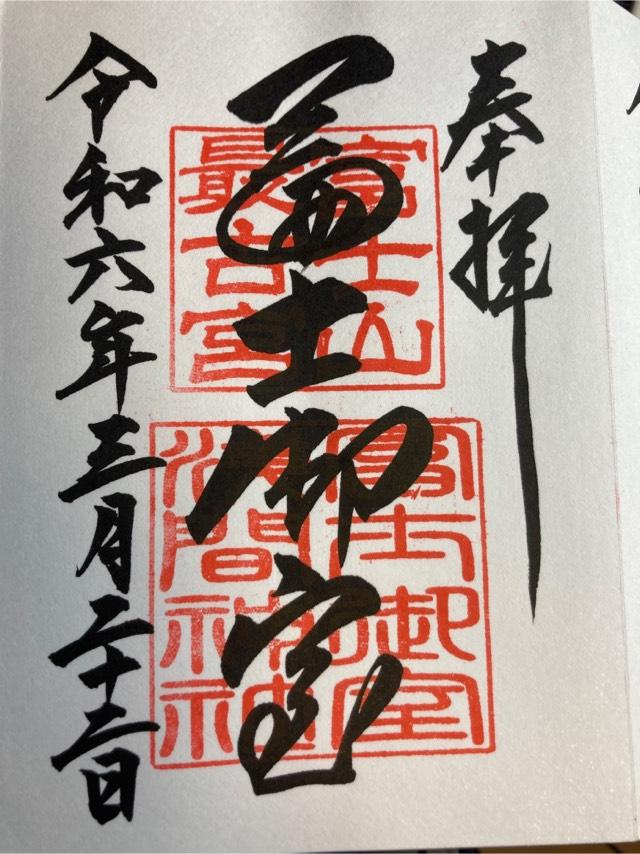 奉拝
富士山
最古宮
冨士御室
冨士御室
浅間神社
令和六年三月二十二日